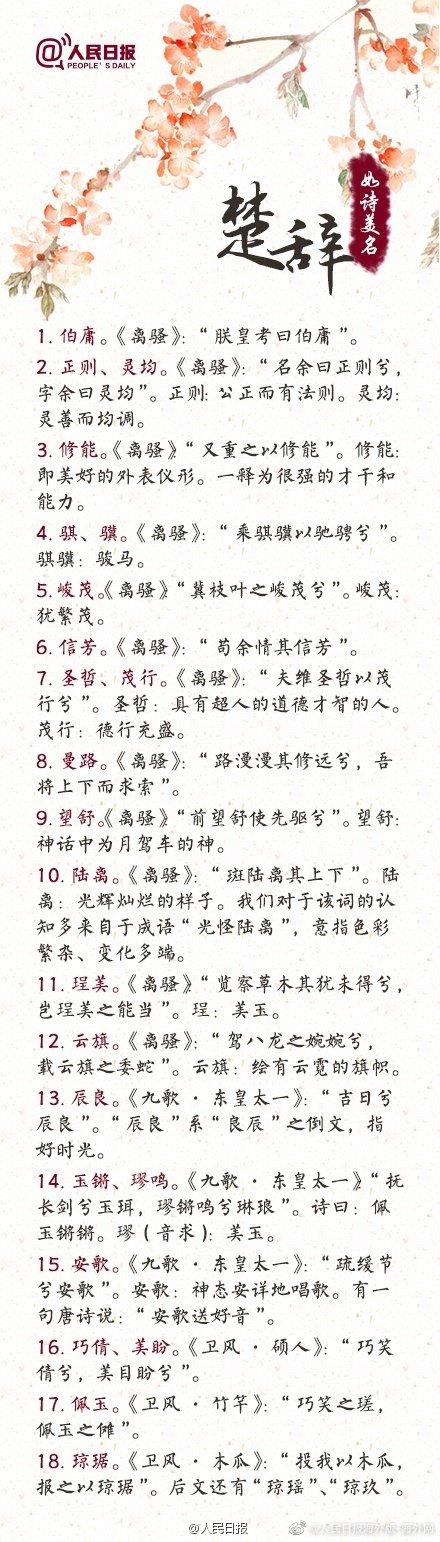 人民日报
PEOPLE'S DAILY
楚辞
如诗美名
1. 伯庸。《离骚》：“朕皇考曰伯庸”。
2. 正则、灵均。《离骚》：“名余曰正则兮，
字余曰灵均”。正则：公正而有法则。灵均：
灵善而均调。
3. 修能。《离骚》“又重之以修能”。修能：
即美好的外表仪形。一释为很强的才干和
能力。
4. 骐、骥。《离骚》：“乘骐骥以驰骋兮”。
骐骥：骏马。
5. 峻茂。《离骚》“冀枝叶之峻茂兮”。峻茂：
犹繁茂。
6. 信芳。《离骚》：“苟余情其信芳”。
7. 圣哲、茂行。《离骚》：“夫维圣哲以茂
行兮”。圣哲：具有超人的道德才智的人。
茂行：德行充盛。
8. 曼路。《离骚》：“路漫漫其修远兮，吾
将上下而求索”。
9. 望舒。《离骚》“前望舒使先驱兮”。望舒：
神话中为月驾车的神。
10. 陆离。《离骚》：“斑陆离其上下”。陆
离：光辉灿烂的样子。我们对于该词的认
知多来自于成语“光怪陆离”，意指色彩
繁杂、变化多端。
11. 珵美。《离骚》“览察草木其犹未得兮，
岂珵美之能当”。珵：美玉。
12. 云旗。《离骚》：“驾八龙之婉婉兮，
载云旗之委蛇”。云旗：绘有云霓的旗帜。
13. 辰良。《九歌·东皇太一》：“吉日兮
辰良”。“辰良”系“良辰”之倒文，指
好时光。
14. 玉锵、璆鸣。《九歌·东皇太一》“抚
长剑兮玉珥，璆锵鸣兮琳琅”。诗曰：佩
玉锵锵。璆（音求）：美玉。
15. 安歌。《九歌·东皇太一》：“疏缓节
兮安歌”。安歌：神态安详地唱歌。有一
句唐诗说：“安歌送好音”。
16. 巧倩、美盼。《卫风·硕人》：“巧笑
倩兮，美目盼兮”。
17. 佩玉。《卫风·竹竿》：“巧笑之瑳，
佩玉之傩”。
18. 琼琚。《卫风·木瓜》：“投我以木瓜，
报之以琼琚”。后文还有“琼瑶”、“琼玖”。
@人民日报
@人民日报海外版-海外网